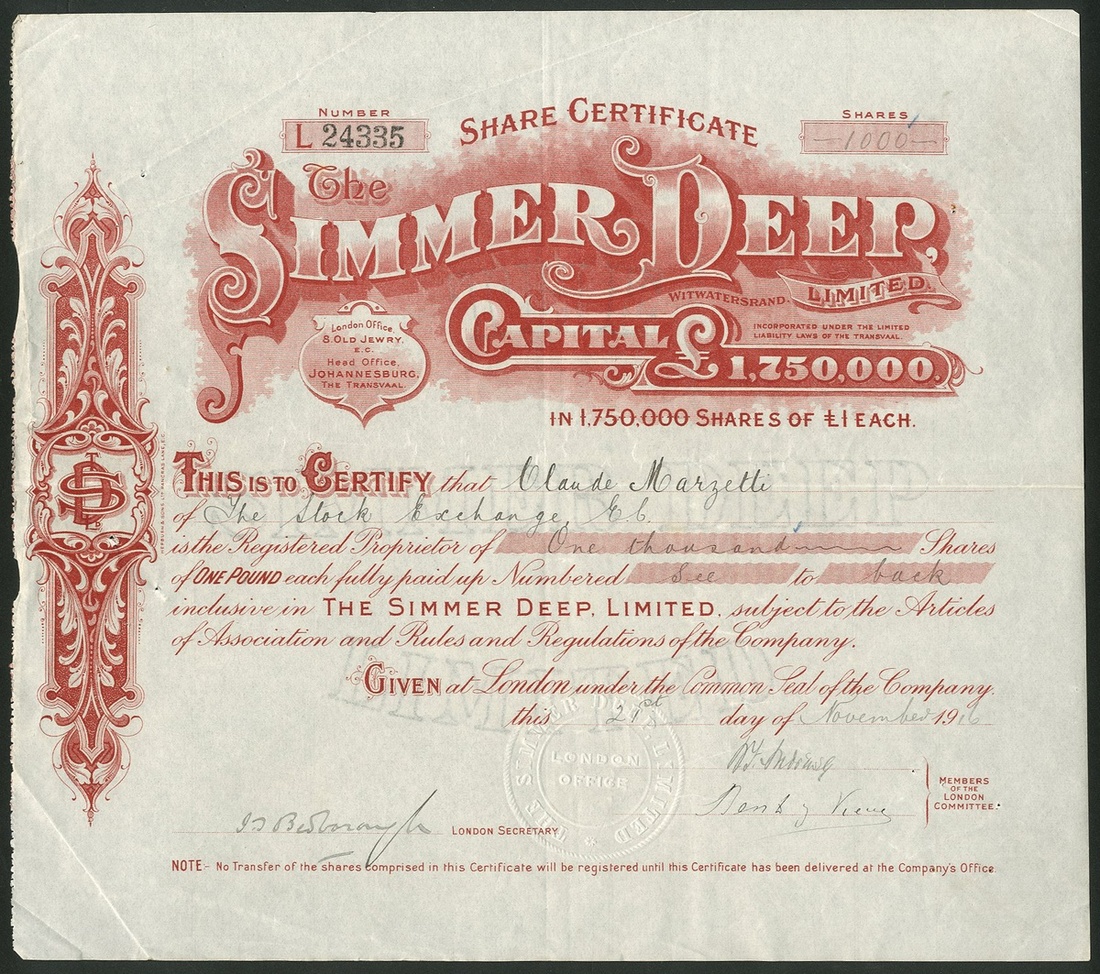 NUMBER
L 24335
SHARE CERTIFICATE
SHARES
—1000—
The
SIMMER DEEP,
LIMITED.
WITWATERSRAND.
INCORPORATED UNDER THE LIMITED
LIABILITY LAWS OF THE TRANSVAAL.
London Office,
8. OLD JEWRY,
E.C.
Head Office,
JOHANNESBURG,
THE TRANSVAAL.
CAPITAL £1,750,000.
IN 1,750,000 SHARES OF £1 EACH.
THIS IS TO CERTIFY that Claude Marzetti
of The Stock Exchange, E.C.
is the Registered Proprietor of One thousand Shares
of ONE POUND each fully paid up Numbered See to back
inclusive in THE SIMMER DEEP, LIMITED, subject to the Articles
of Association and Rules and Regulations of the Company.
GIVEN at London under the Common Seal of the Company.
this 21st day of November 1916
THE SIMMER DEEP LIMITED
LONDON
OFFICE
MEMBERS
OF THE
LONDON
COMMITTEE.
LONDON SECRETARY
NOTE:- No Transfer of the shares comprised in this Certificate will be registered until this Certificate has been delivered at the Company's Office.